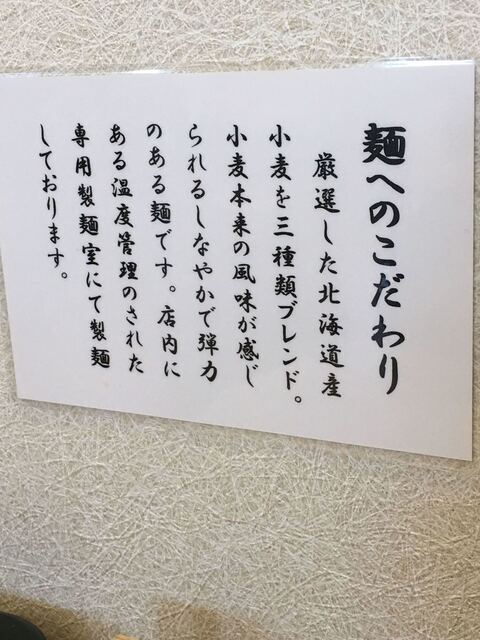 麺へのこだわり
厳選した北海道産
小麦を三種類ブレンド。
小麦本来の風味が感じ
られるしなやかで弾力
のある麺です。店内に
ある温度管理のされた
専用製麺室にて製麺
しております。